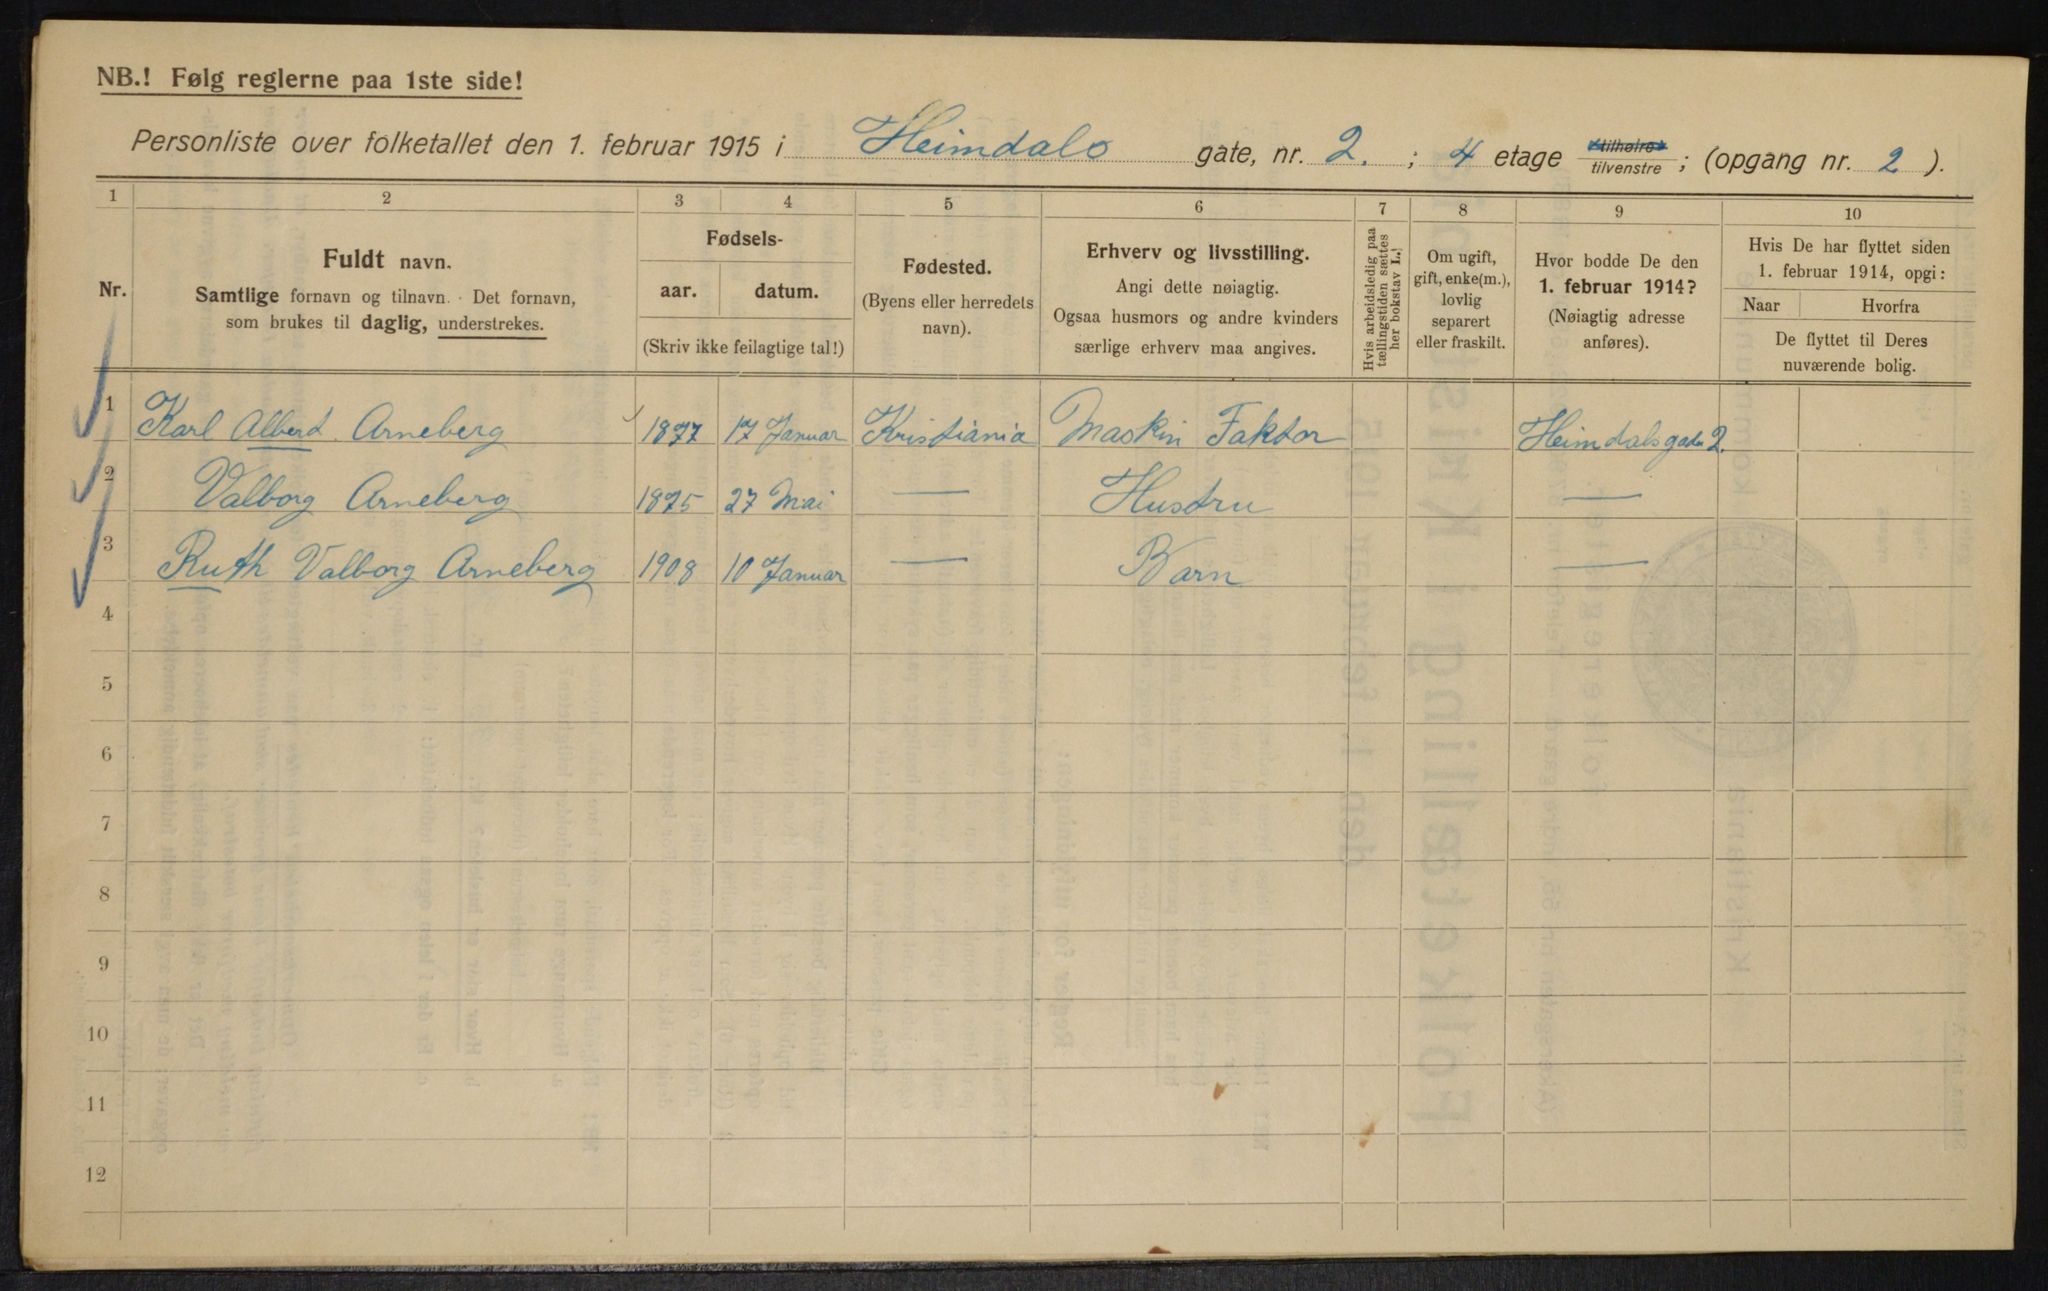 NB.! Følg reglerne paa 1ste side!
Personliste over folketallet den 1. februar 1915 i Heimdals gate, nr. 2. ; 4 etage tilhøire tilvenstre ; (opgang nr. 2 ).
1 2 3 4 5 6 7 8 9 10
Nr.
Fuldt navn.
Samtlige fornavn og tilnavn. Det fornavn,
som brukes til daglig, understrekes.
Fødsels-
aar. datum.
(Skriv ikke feilagtige tal!)
Fødested.
(Byens eller herredets
navn).
Erhverv og livsstilling.
Angi dette nøiagtig.
Ogsaa husmors og andre kvinders
særlige erhverv maa angives.
Hvis arbeidsledig paa
tællingstiden sættes
her bokstav L.
Om ugift,
gift, enke(m.),
lovlig
separert
eller fraskilt.
Hvor bodde De den
1. februar 1914?
(Nøiagtig adresse
anføres).
Hvis De har flyttet siden
1. februar 1914, opgi:
Naar Hvorfra
De flyttet til Deres
nuværende bolig.
1 Karl Albert Arneberg 1877 17 Januar Kristiania Maskin Faktor Heimdalsgade 2.
2 Valborg Arneberg 1875 27 Mai — Hustru —
3 Ruth Valborg Arneberg 1908 10 Januar — Barn —
4
5
6
7
8
9
10
11
12